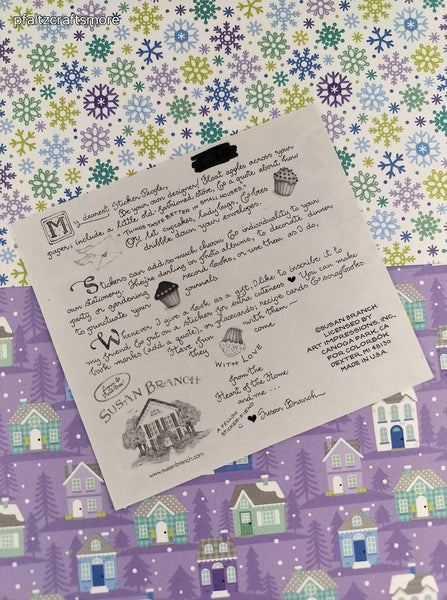 pfaltzcraftsmore
My dearest Sticker People,
Be your own designer! Float apples across your
pages, include a little old fashioned stove & a quote about how
"THINGS TASTE BETTER in SMALL HOUSES."
Or let cupcakes, ladybugs, & shoes
dribble down your envelopes.
Stickers can add so much charm & individuality to your
own stationery. They're darling on photo albums, to decorate dinner
party or gardening record books, or use them as I do,
to punctuate your journals.
Whenever I give a book as a gift, I like to inscribe it to
my friend & put on a sticker for extra cuteness ♥ You can make
book marks (add a quote), or placecards, recipe cards & scrapbooks.
Have fun with them ~
they come
WITH LOVE
from the
Heart of the Home
and me...
A FELLOW
STICKER FRIEND
♥ Susan Branch
SUSAN BRANCH
www.susanbranch.com
©SUSAN BRANCH
LICENSED BY
ART IMPRESSIONS, INC.
CANOGA PARK, CA
FOR COLORBÖK
DEXTER, MI 48130
MADE IN U.S.A.